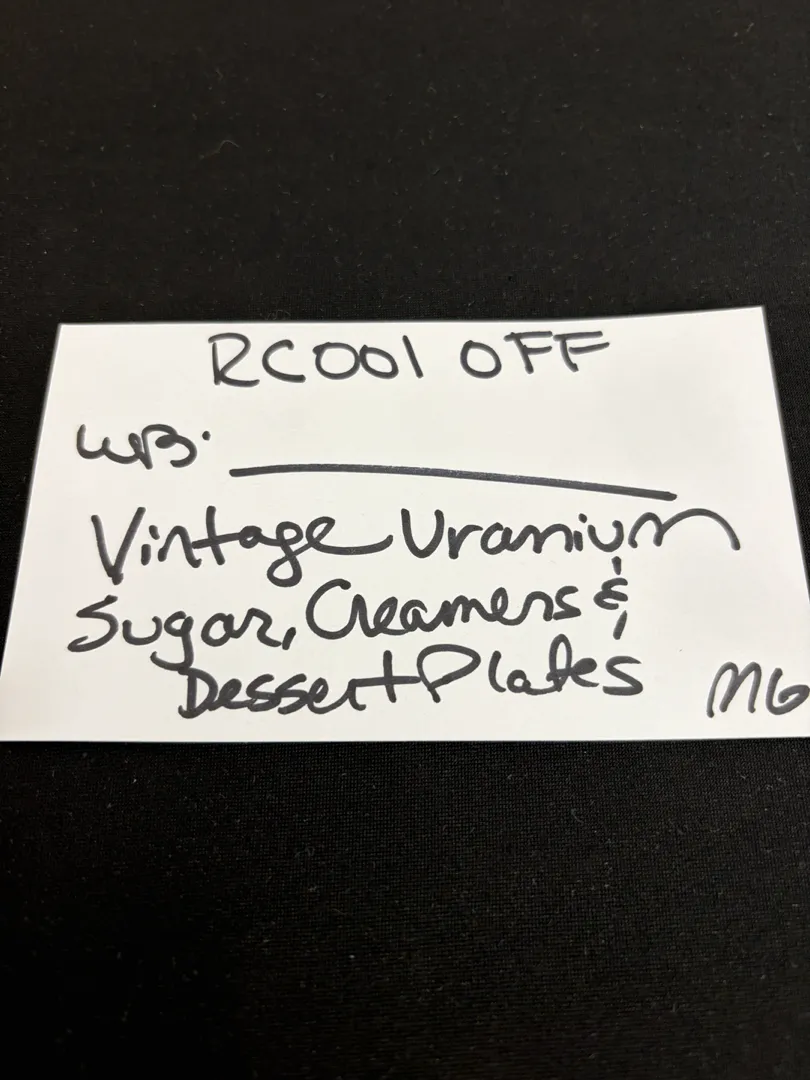 RC001 OFF
WB.
Vintage Uranium
Sugar, Creamers &
Dessert Plates MG